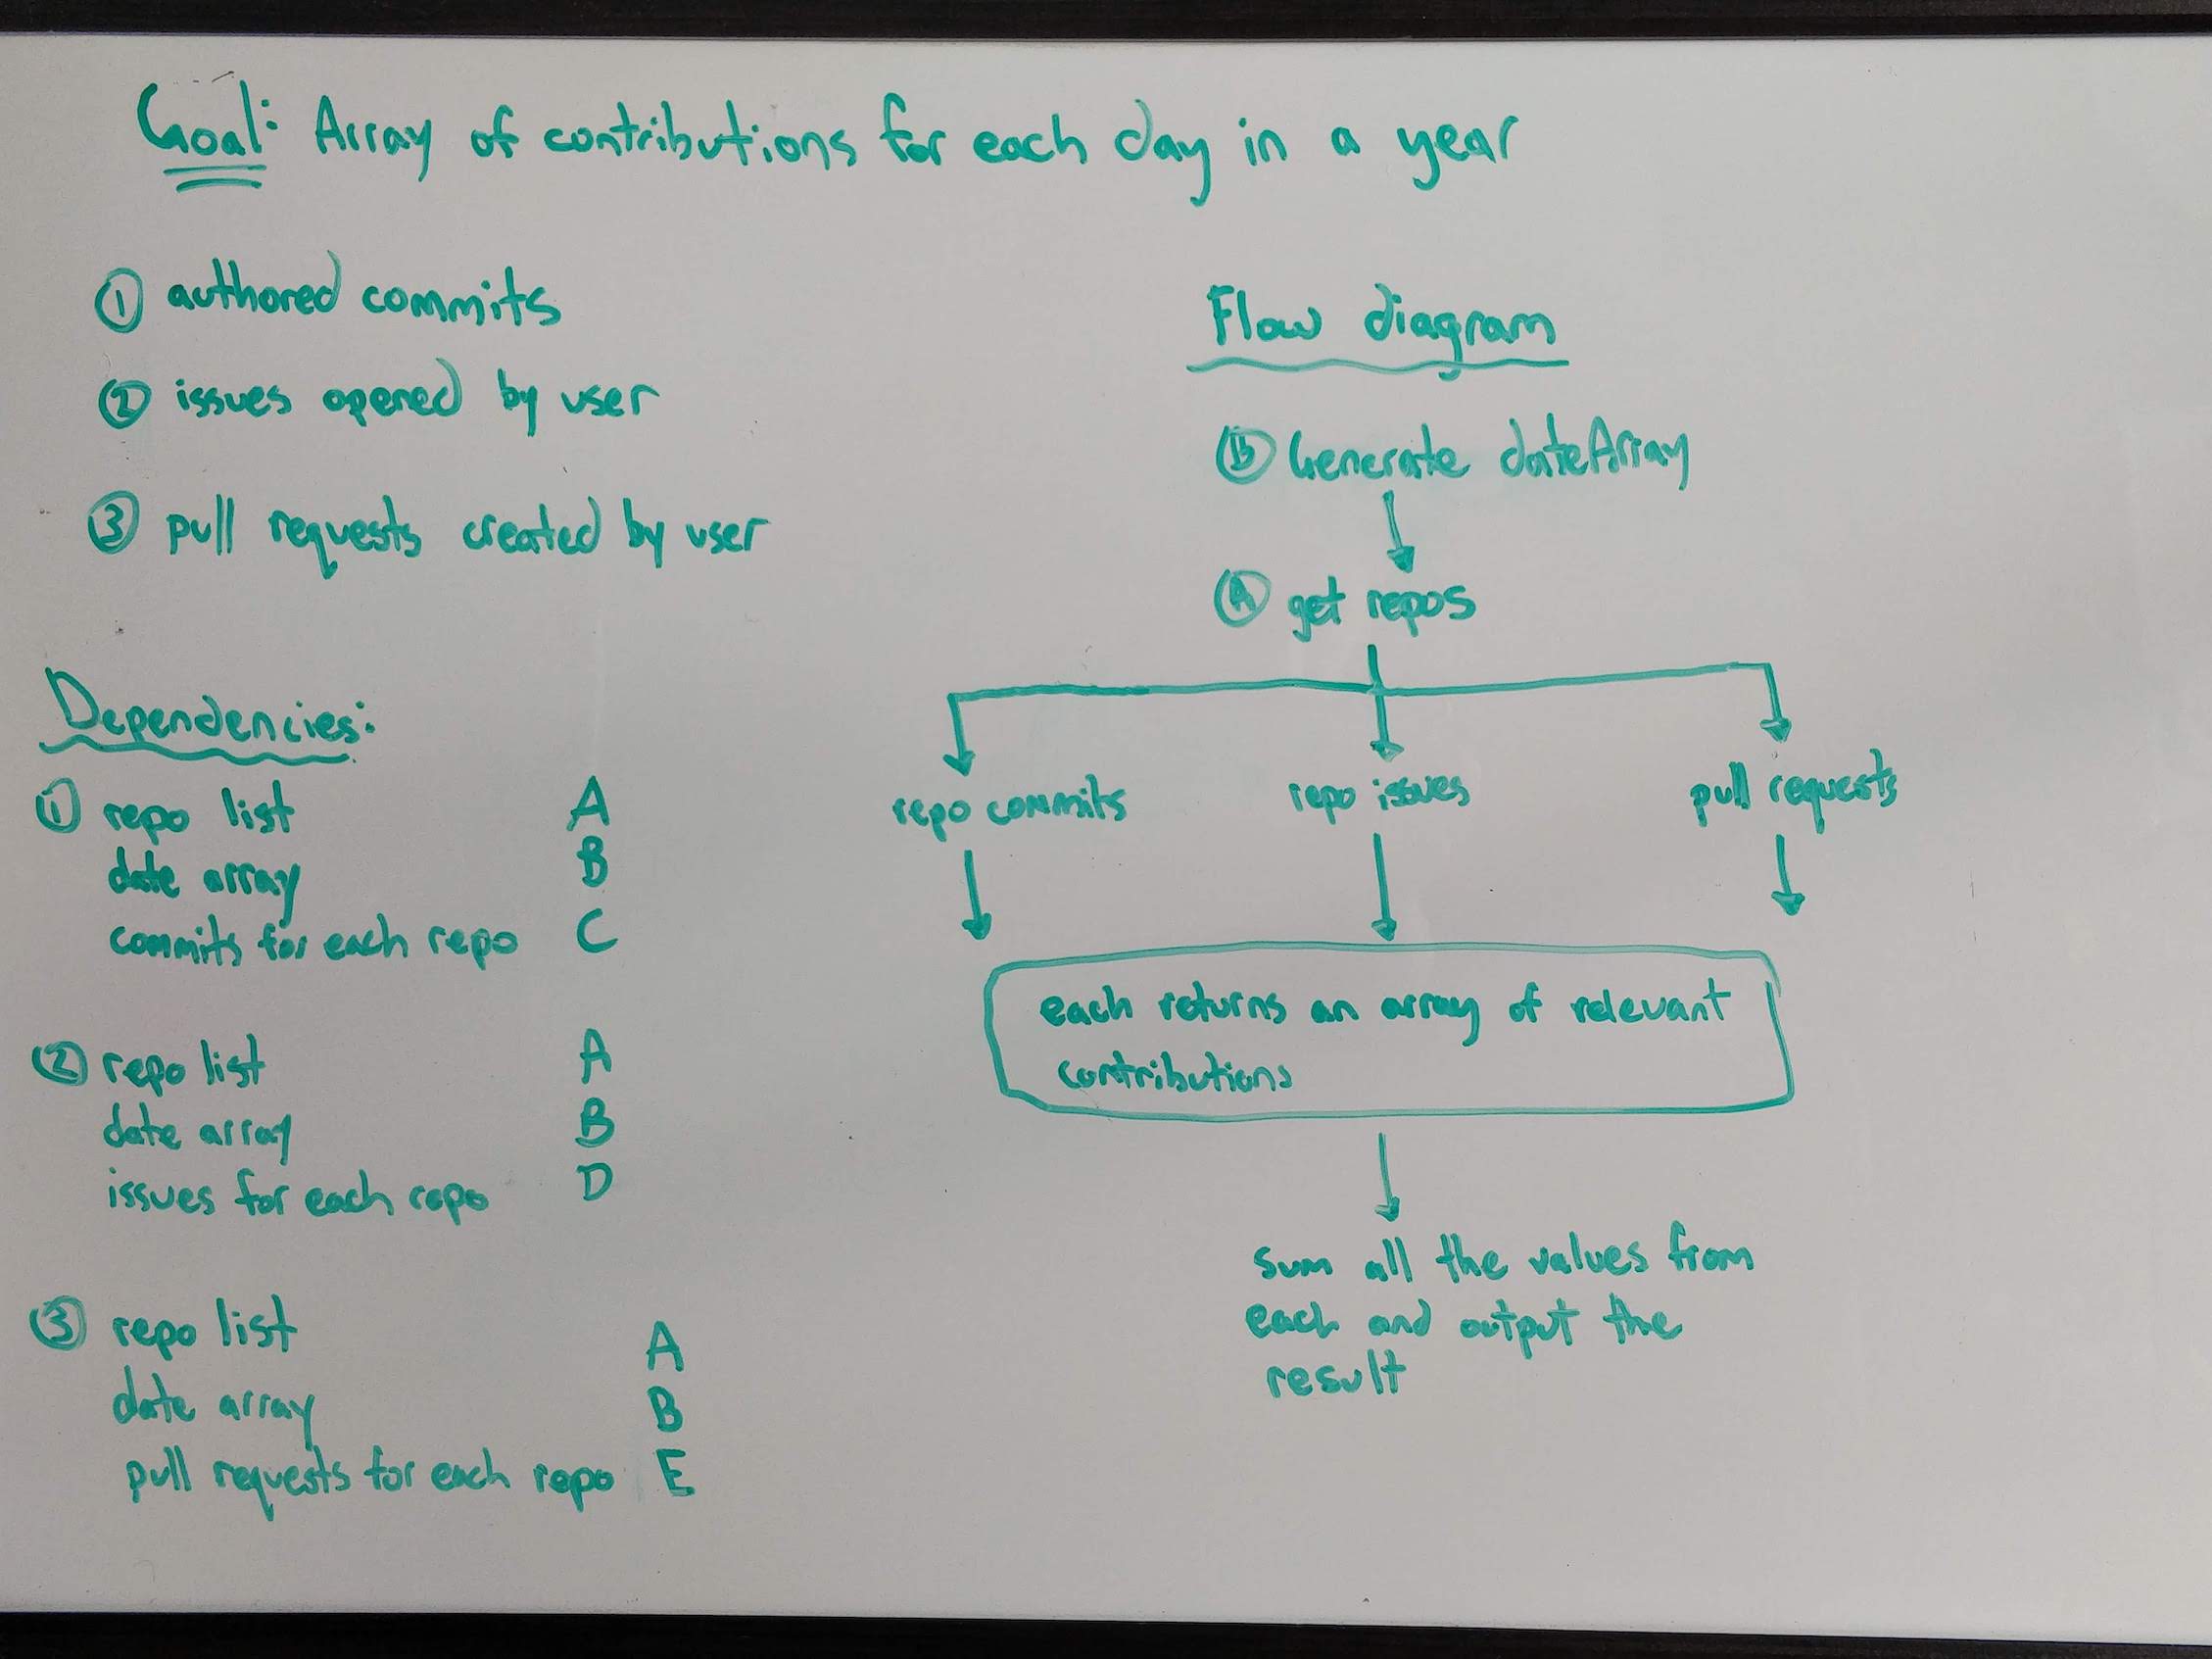 Goal: Array of contributions for each day in a year
① authored commits
② issues opened by user
③ pull requests created by user
Dependencies:
① repo list A
date array B
commits for each repo C
② repo list A
date array B
issues for each repo D
③ repo list A
date array B
pull requests for each repo E
Flow diagram
Ⓑ Generate dateArray
Ⓐ get repos
repo commits
repo issues
pull requests
each returns an array of relevant
contributions
sum all the values from
each and output the
result